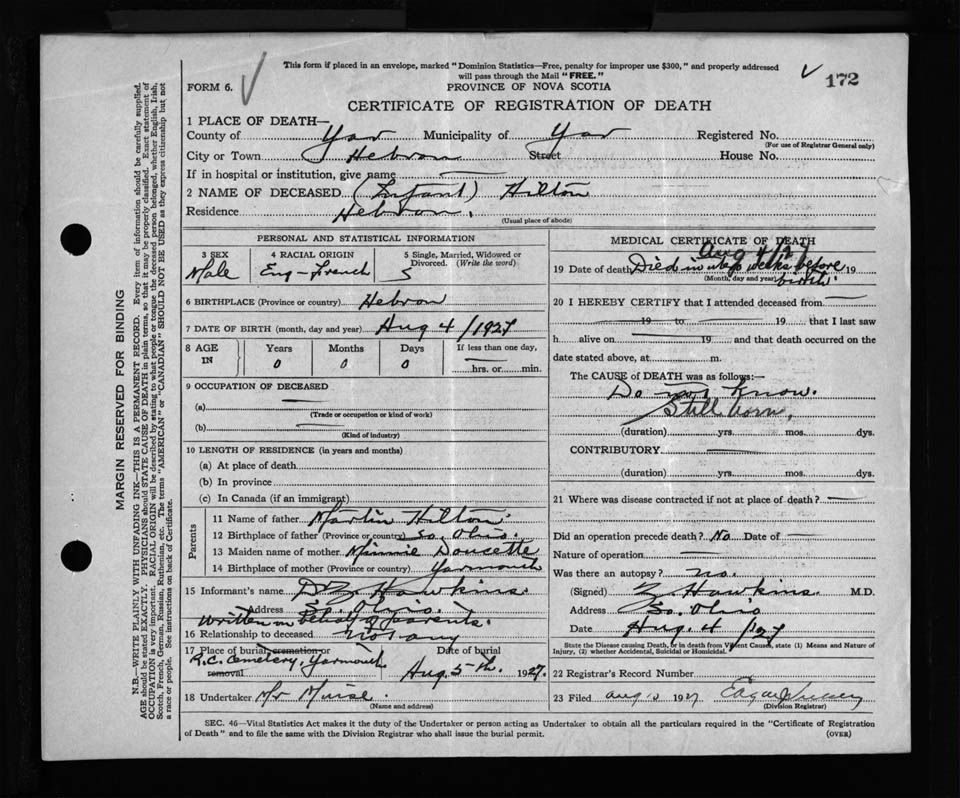 This form if placed in an envelope, marked "Dominion Statistics—Free, penalty for improper use $300," and properly addressed
will pass through the Mail "FREE."
172
FORM 6.
PROVINCE OF NOVA SCOTIA
CERTIFICATE OF REGISTRATION OF DEATH
1 PLACE OF DEATH—
County of Yar Municipality of Yar Registered No.
(For use of Registrar General only)
City or Town Hebron Street House No.
If in hospital or institution, give name —
2 NAME OF DECEASED (Infant) Hilton
Residence Hebron.
(Usual place of abode)
PERSONAL AND STATISTICAL INFORMATION
3 SEX 4 RACIAL ORIGIN 5 Single, Married, Widowed or
Divorced. (Write the word)
Male Eng-French S
6 BIRTHPLACE (Province or country) Hebron
7 DATE OF BIRTH (month, day and year) Aug 4/1927
8 AGE Years Months Days If less than one day,
IN 0 0 0 — hrs. or min.
9 OCCUPATION OF DECEASED
(a) —
(Trade or occupation or kind of work)
(b) —
(Kind of industry)
10 LENGTH OF RESIDENCE (in years and months)
(a) At place of death
(b) In province
(c) In Canada (if an immigrant)
Parents
11 Name of father Martin Hilton
12 Birthplace of father (Province or country) So. Ohio.
13 Maiden name of mother Minnie Doucette
14 Birthplace of mother (Province or country) Yarmouth
15 Informant's name Hawkins.
Address So. Ohio.
Written on behalf of parents.
16 Relationship to deceased not any
17 Place of burial, cremation or Date of burial
R.C. Cemetery, Yarmouth
removal Aug 5th. 1927.
18 Undertaker Mr Muise.
(Name and address)
MEDICAL CERTIFICATE OF DEATH
Aug 4/27
19 Date of death Died weeks before 19
(Month, day and year) birth
20 I HEREBY CERTIFY that I attended deceased from —
19 to 19 that I last saw
h alive on 19 and that death occurred on the
date stated above, at m.
The CAUSE of DEATH was as follows:—
Do not know.
Still born,
(duration) yrs. mos. dys.
CONTRIBUTORY —
(duration) yrs. mos. dys.
21 Where was disease contracted if not at place of death? —
Did an operation precede death? No Date of —
Nature of operation —
Was there an autopsy? no.
(Signed) Z. Hawkins M.D.
Address So. Ohio
Date Aug. 4 /27
State the Disease causing Death, or in death from Violent Causes, state (1) Means and Nature of
Injury, (2) whether Accidental, Suicidal or Homicidal.
22 Registrar's Record Number
23 Filed Aug 1927
(Division Registrar)
SEC. 46—Vital Statistics Act makes it the duty of the Undertaker or person acting as Undertaker to obtain all the particulars required in the "Certificate of Registration
of Death" and to file the same with the Division Registrar who shall issue the burial permit. (OVER)
MARGIN RESERVED FOR BINDING
N.B.—WRITE PLAINLY WITH UNFADING INK—THIS IS A PERMANENT RECORD. Every item of information should be carefully supplied.
AGE should be stated EXACTLY. PHYSICIANS should STATE CAUSE OF DEATH in plain terms, so that it may be properly classified. Exact statement of
OCCUPATION is very important. RACIAL ORIGIN will be described by stating to what people or tongue the deceased person belonged, whether English, Irish,
Scotch, French, German, Russian, Ruthenian, etc. The terms "AMERICAN" or "CANADIAN" SHOULD NOT BE USED as they express citizenship but not
a race or people. See instructions on back of Certificate.